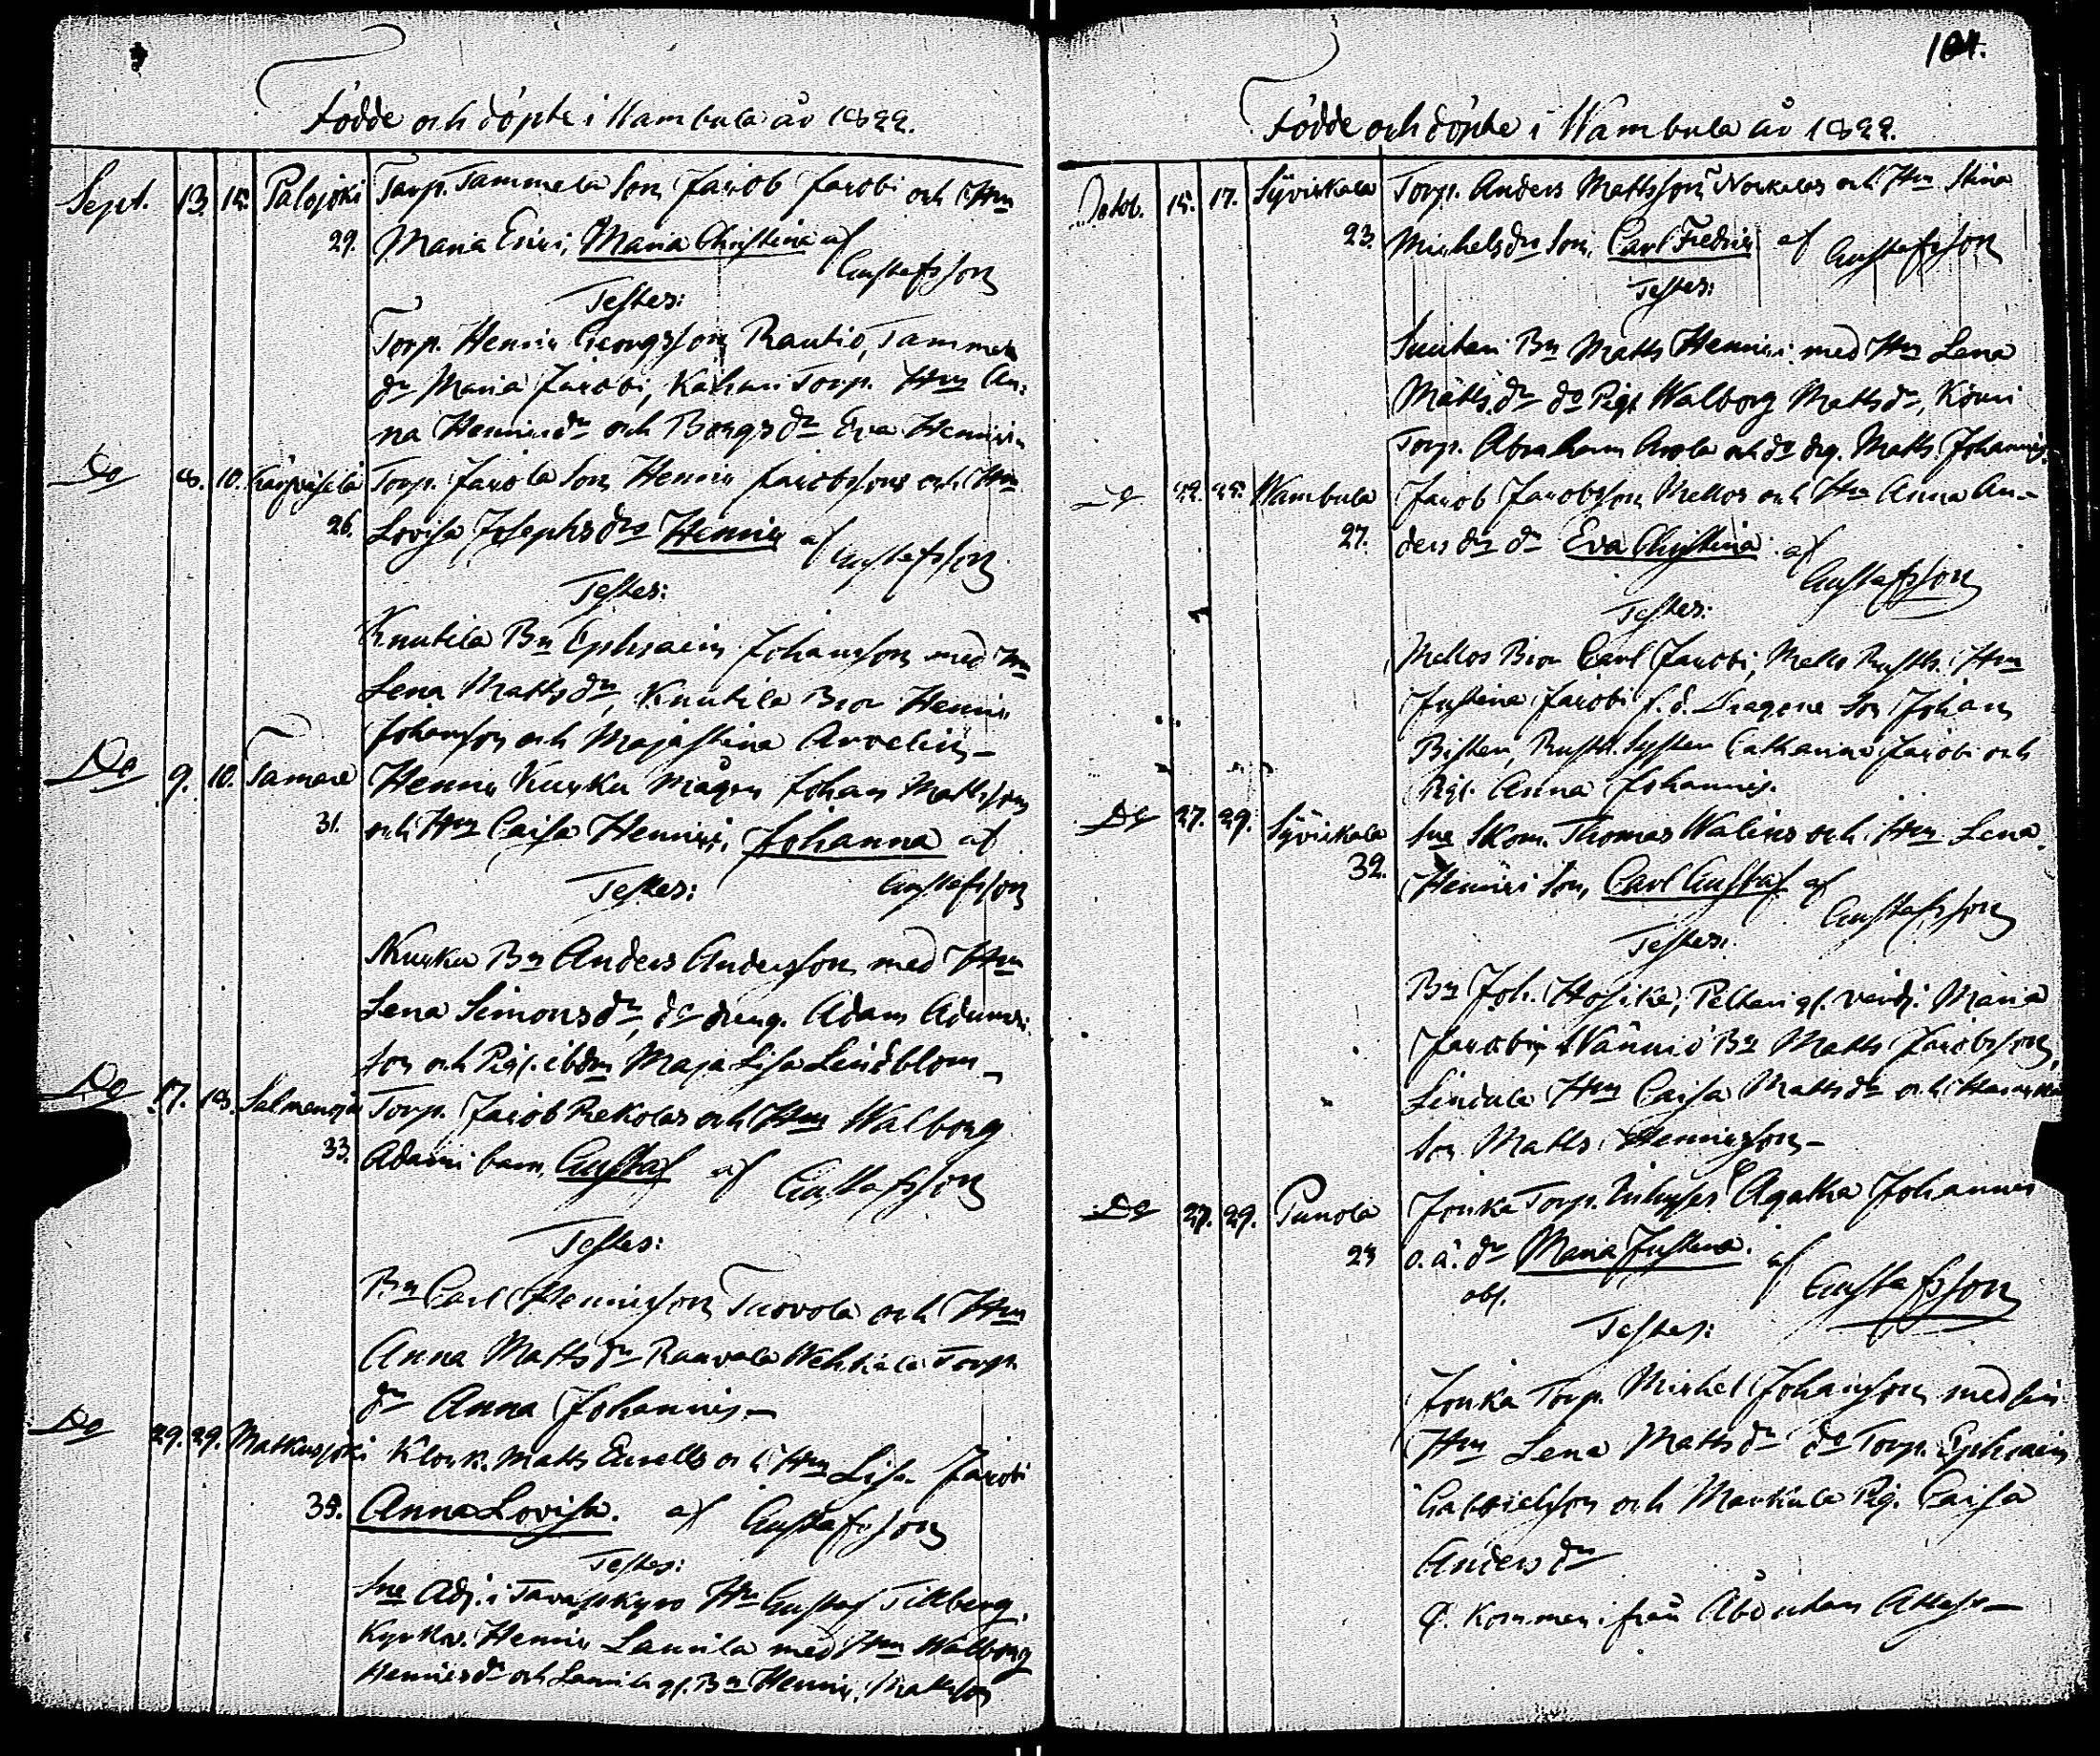 Födde och döpte i Wambula år 1822.
Sept. 13. 15. Palojoki Torp. Tammela Son Jacob Jacobi och Hru
29. Maria Erici, Maria Christina af
Gustafsson
Testes:
Torp. Henric Georgsson Rautio, Tammela
dr Maria Jacobi, Kahari Torp. Hru An-
na Henricsdr och Borgs dr Eva Henrici
Do 8. 10. Torp. Jacola Son Henric Jacobsson och Hru
26. Lovisa Josephs dr Henric af Gustafsson
Testes:
Knutila Bn Ephraim Johansson med Hru
Lena Matts dr, Knutila Bror Henric
Johansson och Maja Stina Arvelin
Do 9. 10. Tamare Henric Kurku Mågen Johan Mattsson
31. och Hru Caisa Henrici, Johanna af
Testes: Gustafsson
Kurku Bn Anders Andersson med Hru
Lena Simons dr, do dreng. Adam Adami
son och Pig. ibdm Maja Lisa Lindblom
Do 17. 18. Salmenoja Torp. Jacob Rekolas och Hru Walborg
33. Adami barn, Gustaf af Gustafsson
Testes:
Bn Carl Henricsson Tuovola och Hru
Anna Matts dr Raavala Wehkala Torp.
dr Anna Johannis
Do 29. 29. Matkusjoki Klock. Matts Eurells och Hru Lisa Jacobi
35. Anna Lovisa. af Gustafsson
Testes:
Sne Adj. i Tavastkyro Hr Gustaf Tillberg,
Kyrkv. Henric Laurila med Hru Walborg
Henrics dr och Laurila gl. Bn Henric Mattsson
104.
Födde och döpte i Wambula år 1822.
Octob. 15. 17. Syvickala Torp. Anders Mattsson Norkalas och Hru Stina
23. Michelsdr Son, Carl Fredric af Gustafsson
Testes:
Suuteri Bn Matts Henrici med Hru Lena
Matts dr do Pigt Walborg Matts dr,
Torp. Abraham Arola och do drg. Matts Johannis
Do 22. 25. Wambula Jacob Jacobsson Mellos och Hru Anna An-
27. ders dr dr Eva Christina af
Gustafsson
Testes:
Mellos Bror Carl Jacobi, Mello Rusth. Hru
Justina Jacobi f.d. Dragone Son Johan
Bisten, Rusth. Syster Catharina Jacobi och
Pig. Anna Johannis.
Do 27. 29. Syvickala Sne Skom. Thomas Walins och Hru Lena
32. Henrici Son, Carl Gustaf af
Gustafsson
Testes:
Bn Joh. Hosike, Peltari gl. verdi. Maria
Jacobi, Wännió Bn Matts Jacobsson,
Lindula Hru Caisa Matts dr och
Son Matts Henricsson
Do 27. 29. Punola Jonka Torp. Inhyses Agatha Johannis
24 o.ä. dr Maria Justina. af
obs. Gustafsson
Testes:
Jonka Torp. Michel Johansson med sin
Hru Lena Matts dr do Torp. Ephraim
Gabrielsson och Markula Pig. Caisa
Anders dr
Kommen ifrån Åbo utan Attest